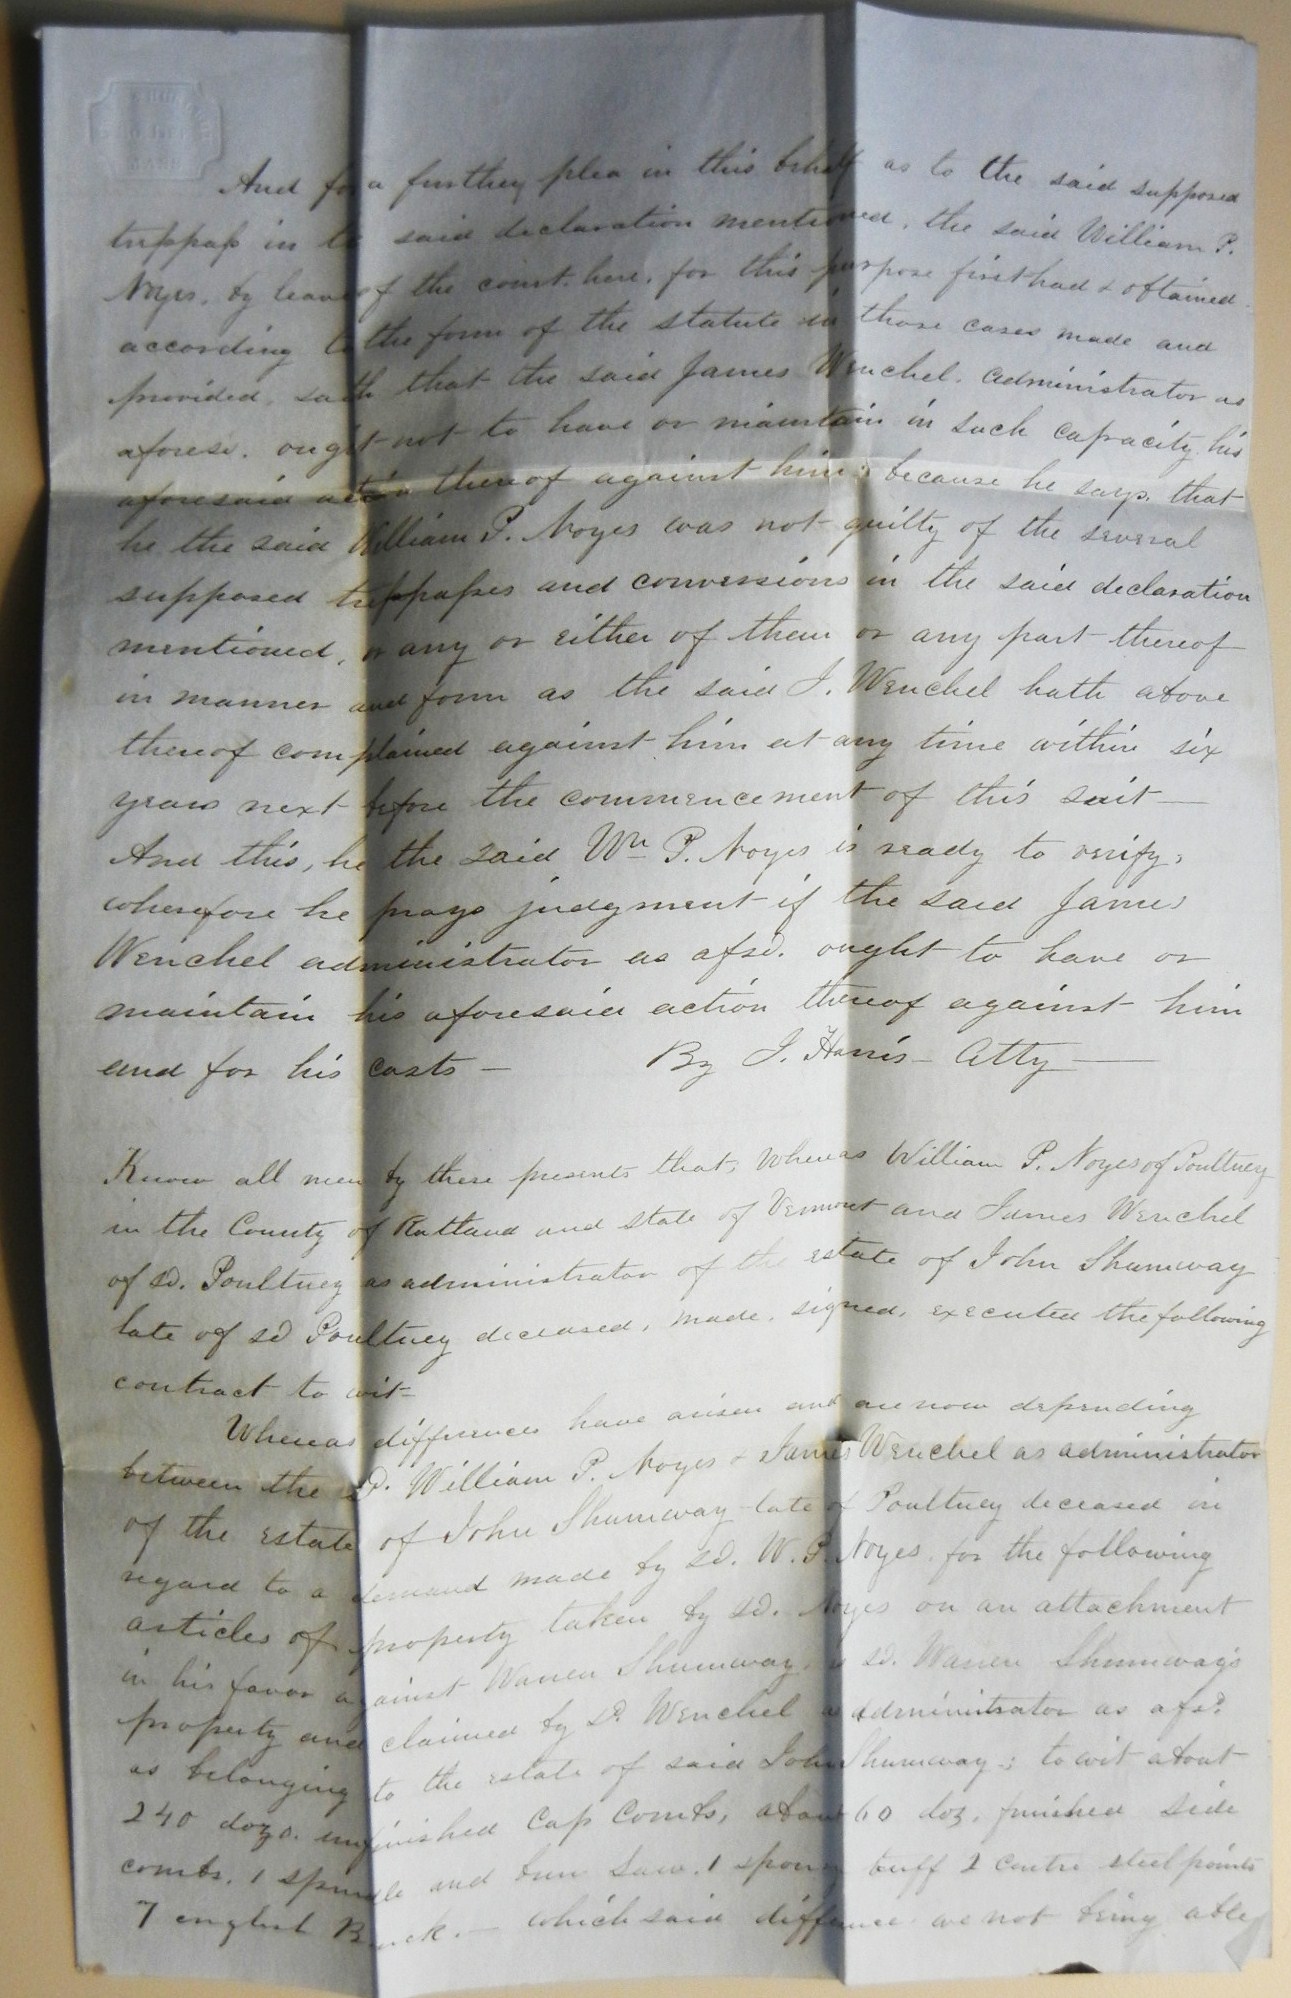 And for a further plea in this behalf as to the said supposed
trespass in the said declaration mentioned, the said William P.
Noyes, by leave of the court here, for this purpose first had & obtained
according to the form of the statute in those cases made and
provided, saith that the said James Wenchel, administrator as
aforesd. ought not to have or maintain in such capacity his
aforesaid action thereof against him; because he says, that
he the said William P. Noyes was not guilty of the several
supposed trespasses and conversions in the said declaration
mentioned, or any or either of them or any part thereof
in manner and form as the said J. Wenchel hath above
thereof complained against him at any time within six
years next before the commencement of this suit —
And this, he the said Wm P. Noyes is ready to verify,
wherefore he prays judgment if the said James
Wenchel administrator as afsd. ought to have or
maintain his aforesaid action thereof against him
and for his costs — By J. Harris – Atty —
Know all men by these presents that, whereas William P. Noyes of Poultney
in the County of Rutland and state of Vermont and James Wenchel
of sd. Poultney as administrator of the estate of John Shumway
late of sd Poultney deceased, made, signed, executed the following
contract to wit –
Whereas differences have arisen and are now depending
between the sd. William P. Noyes & James Wenchel as administrator
of the estate of John Shumway late of Poultney deceased in
regard to a demand made by sd. W. P. Noyes for the following
articles of property taken by sd. Noyes on an attachment
in his favor against Warren Shumway, as sd. Warren Shumway's
property and claimed by sd. Wenchel as administrator as afsd.
as belonging to the estate of said John Shumway; to wit about
240 dozs. unfinished Cap Combs, about 60 doz. finished side
combs, 1 spindle and saw, 1 buff 2 centre steel points
7 english – which said difference we not being able